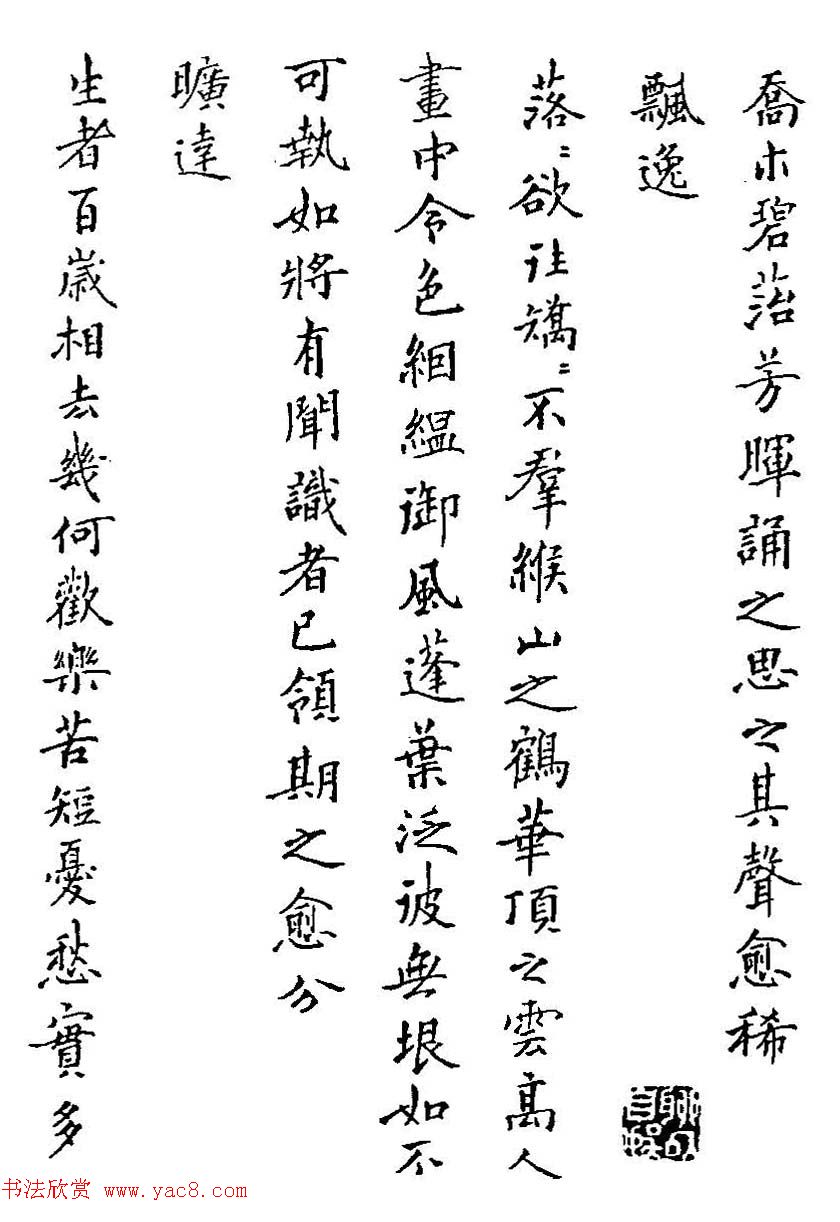 喬木碧菭芳暉誦之思之其聲愈稀
飄逸
落〻欲往矯〻不羣緱山之鶴華頂之雲高人
畫中令色絪縕御風蓬葉泛彼無垠如不
可執如將有聞識者已領期之愈分
曠達
生者百歲相去幾何歡樂苦短憂愁實多
聊以自娛
书法欣赏 www.yac8.com